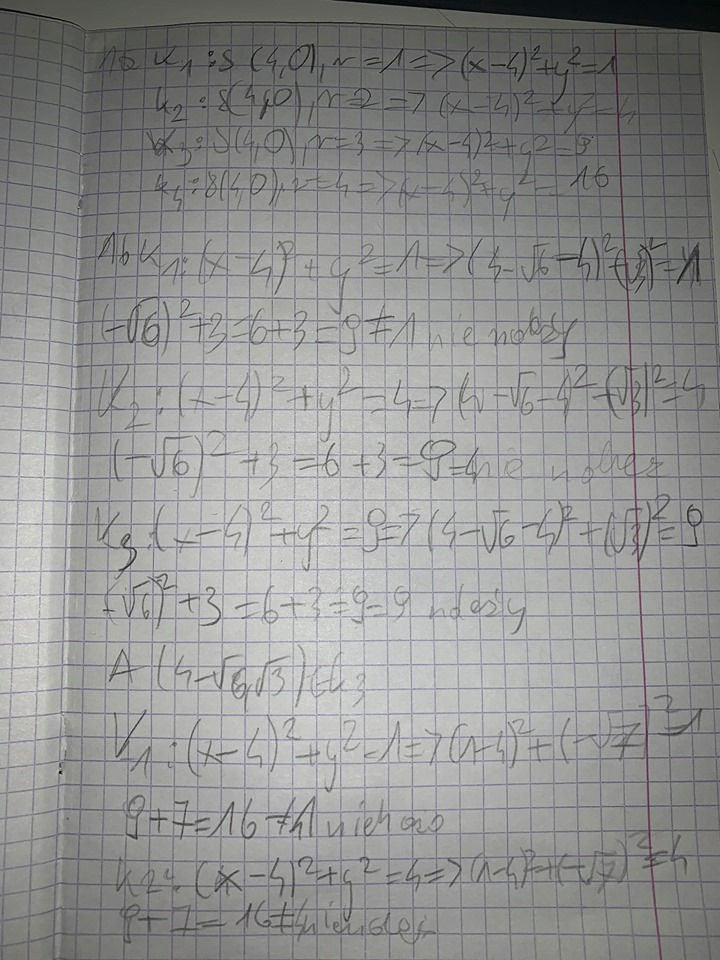 1b K₁: S(4,0), r=1 => (x-4)²+y²=1
k₂: S(4,0), r=2 => (x-4)²+y²=4
k₃: S(4,0), r=3 => (x-4)²+y²=9
k₄: S(4,0), r=4 => (x-4)²+y²=16
1b K₁: (x-4)²+y²=1 => (4-√6-4)²+(√3)²=1
(-√6)²+3=6+3=9≠1 nie należy
K₂: (x-4)²+y²=4 => (4-√6-4)²+(√3)²=4
(-√6)²+3=6+3=9=4 nie
K₃: (x-4)²+y²=9 => (4-√6-4)²+(√3)²=9
(-√6)²+3=6+3=9=9
A(4-√6,√3)∈k₃
K₁: (x-4)²+y²=1 => (1-4)²+(-√7)²=1
9+7=16≠1
K₂: (x-4)²+y²=4 => (1-4)²+(-√7)²=4
9+7=16≠4